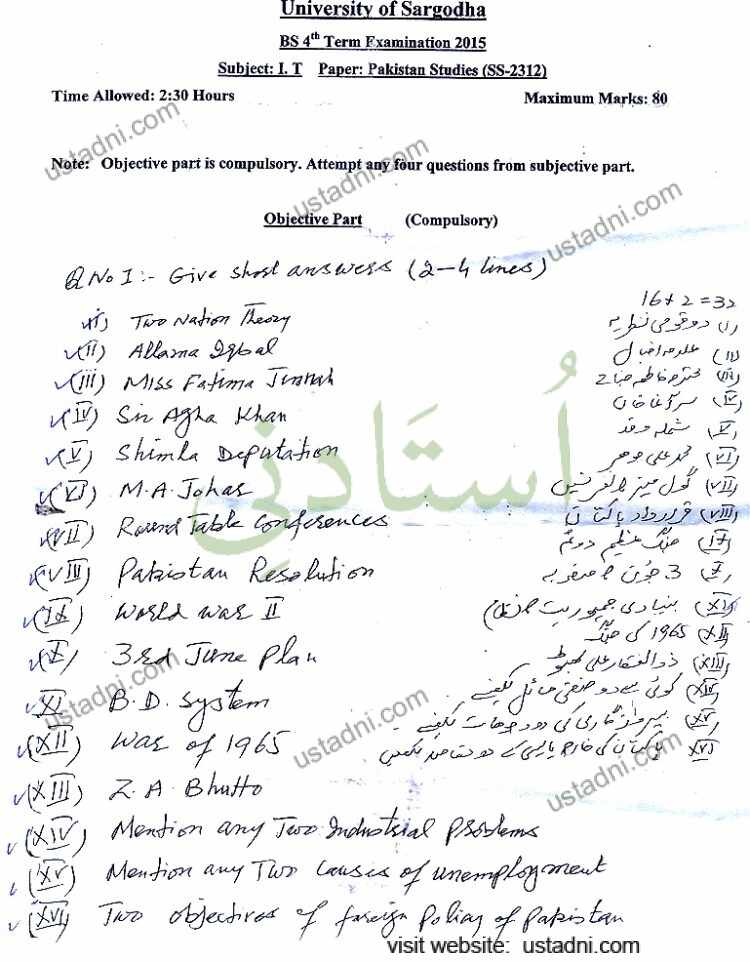 University of Sargodha
BS 4th Term Examination 2015
Subject: I. T Paper: Pakistan Studies (SS-2312)
Time Allowed: 2:30 Hours Maximum Marks: 80
Note: Objective part is compulsory. Attempt any four questions from subjective part.
Objective Part (Compulsory)
Q No I :- Give short answers (2-4 lines)
16+2=32
(i) Two Nation Theory
(i) دو قومی نظریہ
(ii) Allama Iqbal
(ii) علامہ اقبال
(iii) Miss Fatima Jinnah
(iii) محترمہ فاطمہ جناح
(iv) Sir Agha Khan
(iv) سر آغا خان
(v) Shimla Deputation
(v) شملہ وفد
(VI) M.A. Johar
(VI) محمد علی جوہر
(VII) Round Table Conferences
(VII) گول میز کانفرنسیں
(VIII) Pakistan Resolution
(VIII) قرارداد پاکستان
(IX) World war II
(IX) جنگ عظیم دوئم
(X) 3rd June Plan
(X) 3 جون کا منصوبہ
(XI) B.D. System
(XI) بنیادی جمہوریت کا نظام
(XII) War of 1965
(XII) 1965 کی جنگ
(XIII) Z.A Bhutto
(XIII) ذوالفقار علی بھٹو
(XIV) Mention any Two Industrial problems
(XIV) کوئی سے دو صنعتی مسائل لکھیے
(XV) Mention any Two causes of unemployment
(XV) بیروزگاری کی دو وجوہات لکھیے
(XVI) Two objectives of foreign policy of Pakistan
(XVI) پاکستان کی خارجہ پالیسی کے دو مقاصد لکھیں
اُستادنی
ustadni.com
ustadni.com
ustadni.com
ustadni.com
ustadni.com
ustadni.com
visit website: ustadni.com